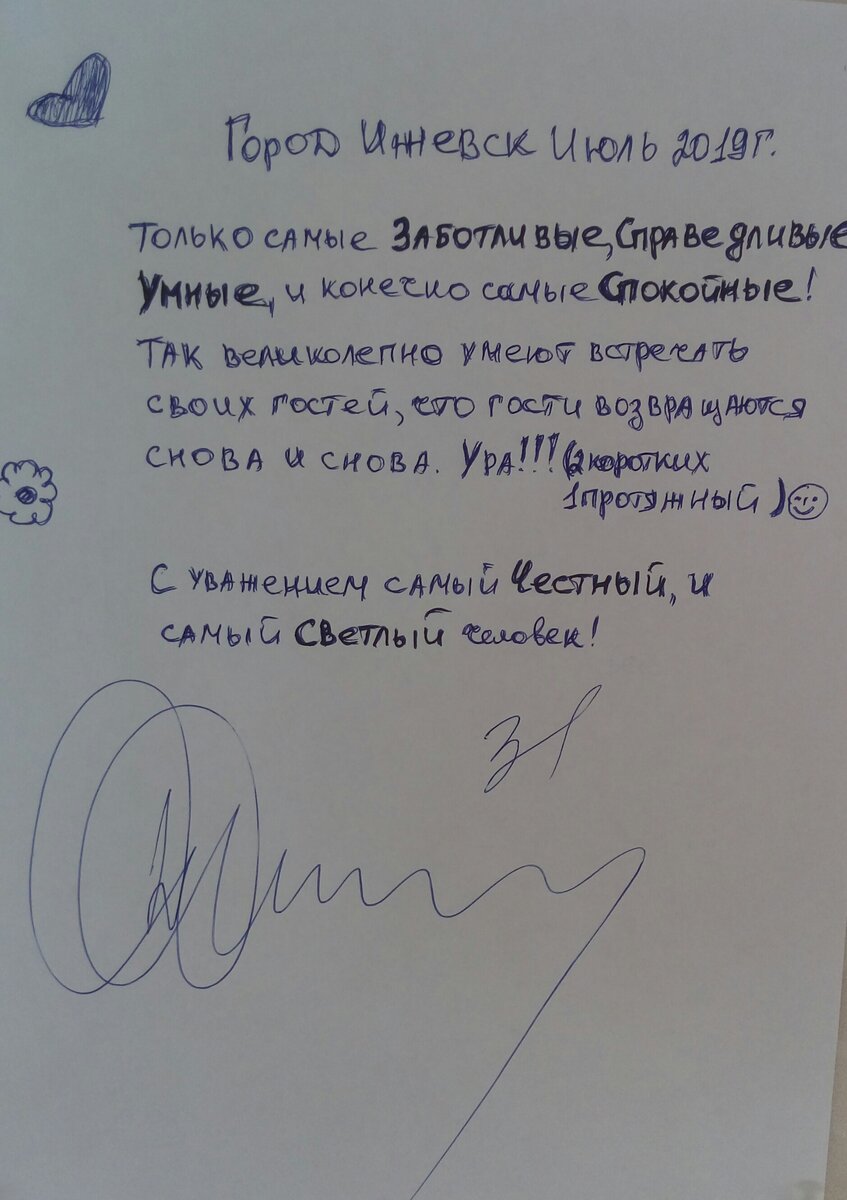 Город Ижевск Июль 2019г.
Только самые Заботливые, Справедливые
Умные, и конечно самые Спокойные!
Так великолепно умеют встречать
своих гостей, что гости возвращаются
снова и снова. Ура!!! (2 коротких
1 протяжный)
С уважением самый Честный, и
самый Светлый человек!